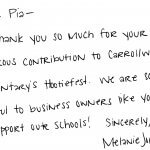 Pia-
hank you so much for your
ous contribution to Carrollw
entary's Hootiefest. We are so
ful to business owners like yo
upport our schools! Sincerely,
Melanie Ja